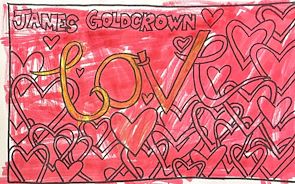 JAMES GOLDCROWN
Love